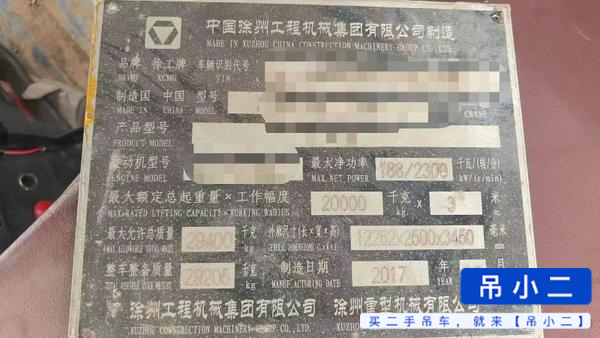 中国徐州工程机械集团有限公司制造
MADE IN XUZHOU CHINA CONSTRUCTION MACHINERY GROUP CO.,LTD.
品牌 徐工牌 车辆识别代号
BRAND XCMG VIN
制造国 中国 型号
MADE IN CHINA MODEL CRANE
产品型号
PRODUCT MODEL
发动机型号 最大净功率 188/2300 千瓦/(转/分)
ENGINE MODEL MAX.NET POWER kW/(r/min)
最大额定总起重量×工作幅度 20000 千克 × 3 米
MAX.RATED LIFTING CAPACITY×WORKING RADIUS kg m
最大允许总质量 29400 千克 外廓尺寸(长×宽×高) 12262x2500x3450 毫米
MAX ALLOWABLE TOTAL MASS kg
整车整备质量 29205 千克 制造日期 2017 年 月
TOTAL VEHICLE CURB WEIGHT kg MANUFACTURING DATE YEAR
徐州工程机械集团有限公司 徐州重型机械有限公司
XUZHOU CONSTRUCTION MACHINERY GROUP CO.,LTD. XUZHOU
吊小二
买二手吊车，就来【吊小二】